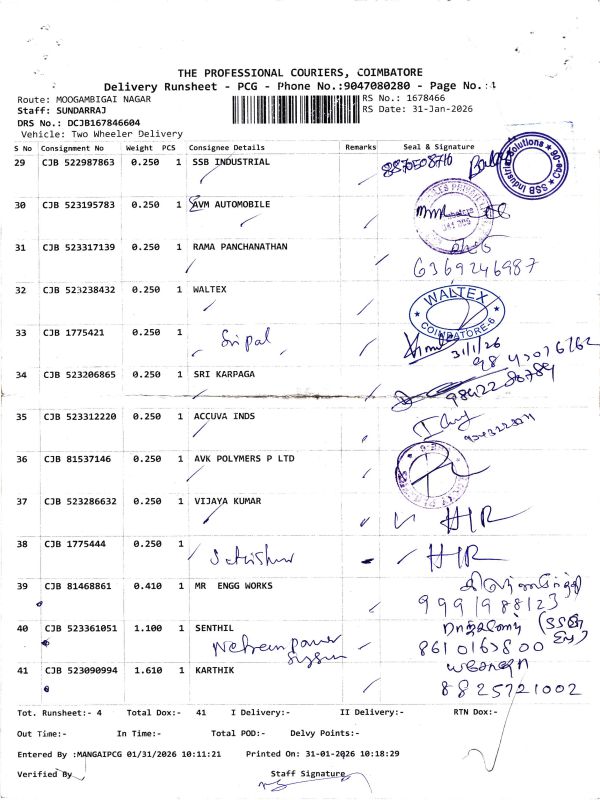 THE PROFESSIONAL COURIERS, COIMBATORE
Delivery Runsheet - PCG - Phone No.:9047080280 - Page No.:4
Route: MOOGAMBIGAI NAGAR
RS No.: 1678466
Staff: SUNDARRAJ
RS Date: 31-Jan-2026
DRS No.: DCJB167846604
Vehicle: Two Wheeler Delivery
S No Consignment No Weight PCS Consignee Details Remarks Seal & Signature
29 CJB 522987863 0.250 1 SSB INDUSTRIAL 8870508710
SSB Industrial Solutions
30 CJB 523195783 0.250 1 AVM AUTOMOBILE
31 CJB 523317139 0.250 1 RAMA PANCHANATHAN
6369246987
32 CJB 523238432 0.250 1 WALTEX
WALTEX
COIMBATORE-6
33 CJB 1775421 0.250 1 Sripal
31/1/26
34 CJB 523206865 0.250 1 SRI KARPAGA
35 CJB 523312220 0.250 1 ACCUVA INDS
36 CJB 81537146 0.250 1 AVK POLYMERS P LTD
37 CJB 523286632 0.250 1 VIJAYA KUMAR HIR
38 CJB 1775444 0.250 1 HIR
39 CJB 81468861 0.410 1 MR ENGG WORKS
9991988123
40 CJB 523361051 1.100 1 SENTHIL
8610163800
41 CJB 523090994 1.610 1 KARTHIK
8825721002
Tot. Runsheet:- 4 Total Dox:- 41 I Delivery:- II Delivery:- RTN Dox:-
Out Time:- In Time:- Total POD:- Delvy Points:-
Entered By :MANGAIPCG 01/31/2026 10:11:21 Printed On: 31-01-2026 10:18:29
Verified By Staff Signature